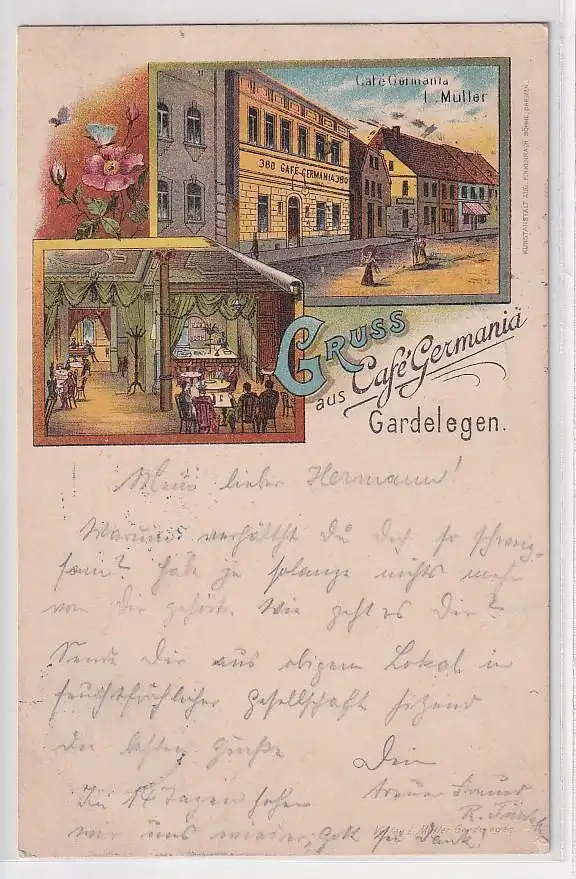 Café Germania
L. Müller
380 CAFE GERMANIA 380
KUNSTANSTALT
GRUSS
aus Café Germania
Gardelegen.
Mein lieber Hermann!
Warum verhältst Du Dich so schweig-
sam? Habe ja solange nichts mehr
von Dir gehört. Wie geht es Dir?
Sende Dir aus obigem Lokal in
feuchtfröhlicher Gesellschaft sitzend
die besten Grüße
Dein
treuer Freund
R.
In 14 Tagen sehen
wir uns wieder, Gott sei Dank.
Verlag L. Müller Gardelegen.